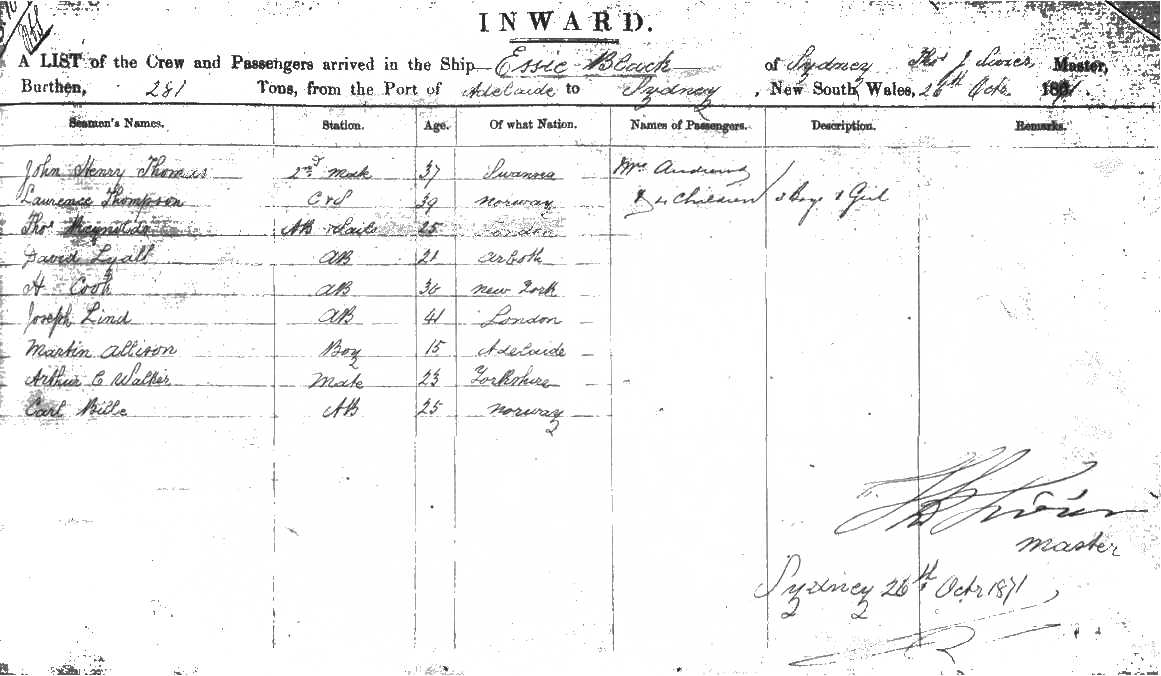 INWARD.
A LIST of the Crew and Passengers arrived in the Ship Essie Black of Sydney Thos J Master,
Burthen, 281 Tons, from the Port of Adelaide to Sydney, New South Wales, 26th Octr 1871
Seamen's Names. Station. Age. Of what Nation. Names of Passengers. Description. Remarks.
John Henry Thomas 2nd Mate 37 Swansea Mrs Andrews
Laurence Thompson C & S 39 Norway & 4 Children 3 Boys 1 Girl
Thos Reynolds AB & Sails 25 London
David Lyall AB 21 Arboth
H Cook AB 30 New York
Joseph Lind AB 41 London
Martin Allison Boy 15 Adelaide
Arthur C Walker Mate 23 Yorkshire
Carl Bille AB 25 Norway
Master
Sydney 26th Octr 1871